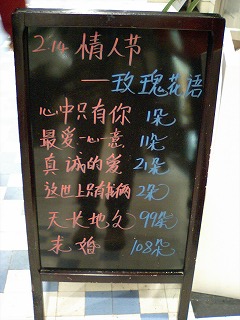 2.14 情人节
——玫瑰花语
心中只有你 1朵
最爱·一心一意 11朵
真诚的爱 21朵
这世上只有我俩 2朵
天长地久 99朵
求婚 108朵